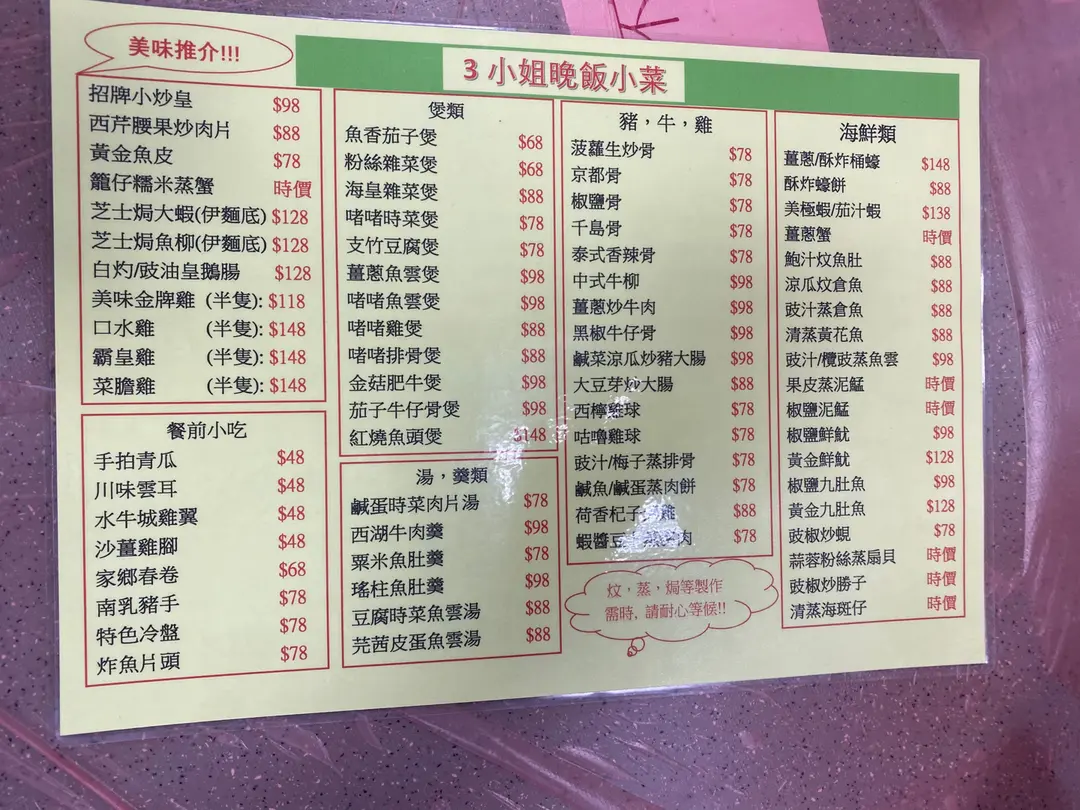 美味推介!!!
3 小姐晚飯小菜
招牌小炒皇 $98
西芹腰果炒肉片 $88
黃金魚皮 $78
籠仔糯米蒸蟹 時價
芝士焗大蝦(伊麵底) $128
芝士焗魚柳(伊麵底) $128
白灼/豉油皇鵝腸 $128
美味金牌雞 (半隻): $118
口水雞 (半隻): $148
霸皇雞 (半隻): $148
菜膽雞 (半隻): $148
餐前小吃
手拍青瓜 $48
川味雲耳 $48
水牛城雞翼 $48
沙薑雞腳 $48
家鄉春卷 $68
南乳豬手 $78
特色冷盤 $78
炸魚片頭 $78
煲類
魚香茄子煲 $68
粉絲雜菜煲 $68
海皇雜菜煲 $88
啫啫時菜煲 $78
支竹豆腐煲 $78
薑蔥魚雲煲 $98
啫啫魚雲煲 $98
啫啫雞煲 $88
啫啫排骨煲 $88
金菇肥牛煲 $98
茄子牛仔骨煲 $98
紅燒魚頭煲 $148
湯，羹類
鹹蛋時菜肉片湯 $78
西湖牛肉羹 $98
粟米魚肚羹 $78
瑤柱魚肚羹 $98
豆腐時菜魚雲湯 $88
芫茜皮蛋魚雲湯 $88
豬，牛，雞
菠蘿生炒骨 $78
京都骨 $78
椒鹽骨 $78
千島骨 $78
泰式香辣骨 $78
中式牛柳 $98
薑蔥炒牛肉 $98
黑椒牛仔骨 $98
鹹菜涼瓜炒豬大腸 $98
大豆芽炒大腸 $88
西檸雞球 $78
咕嚕雞球 $78
豉汁/梅子蒸排骨 $78
鹹魚/鹹蛋蒸肉餅 $78
荷香杞子 雞 $88
蝦醬豆 肉 $78
炆，蒸，焗等製作
需時, 請耐心等候!!
海鮮類
薑蔥/酥炸桶蠔 $148
酥炸蠔餅 $88
美極蝦/茄汁蝦 $138
薑蔥蟹 時價
鮑汁炆魚肚 $88
涼瓜炆倉魚 $88
豉汁蒸倉魚 $88
清蒸黃花魚 $88
豉汁/欖豉蒸魚雲 $98
果皮蒸泥鯭 時價
椒鹽泥鯭 時價
椒鹽鮮魷 $98
黃金鮮魷 $128
椒鹽九肚魚 $98
黃金九肚魚 $128
豉椒炒蜆 $78
蒜蓉粉絲蒸扇貝 時價
豉椒炒勝子 時價
清蒸海斑仔 時價